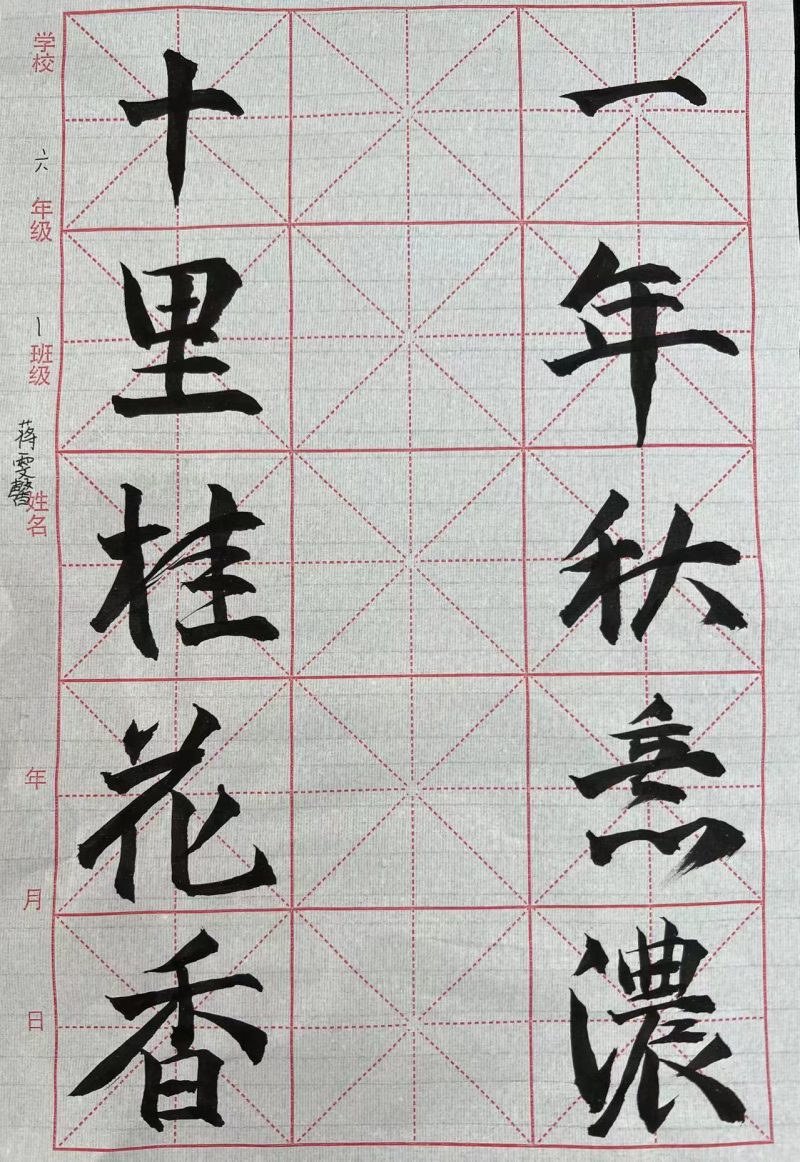 一年秋意濃
十里桂花香
学校
六年级
1班级
蒋雯馨姓名
年月日